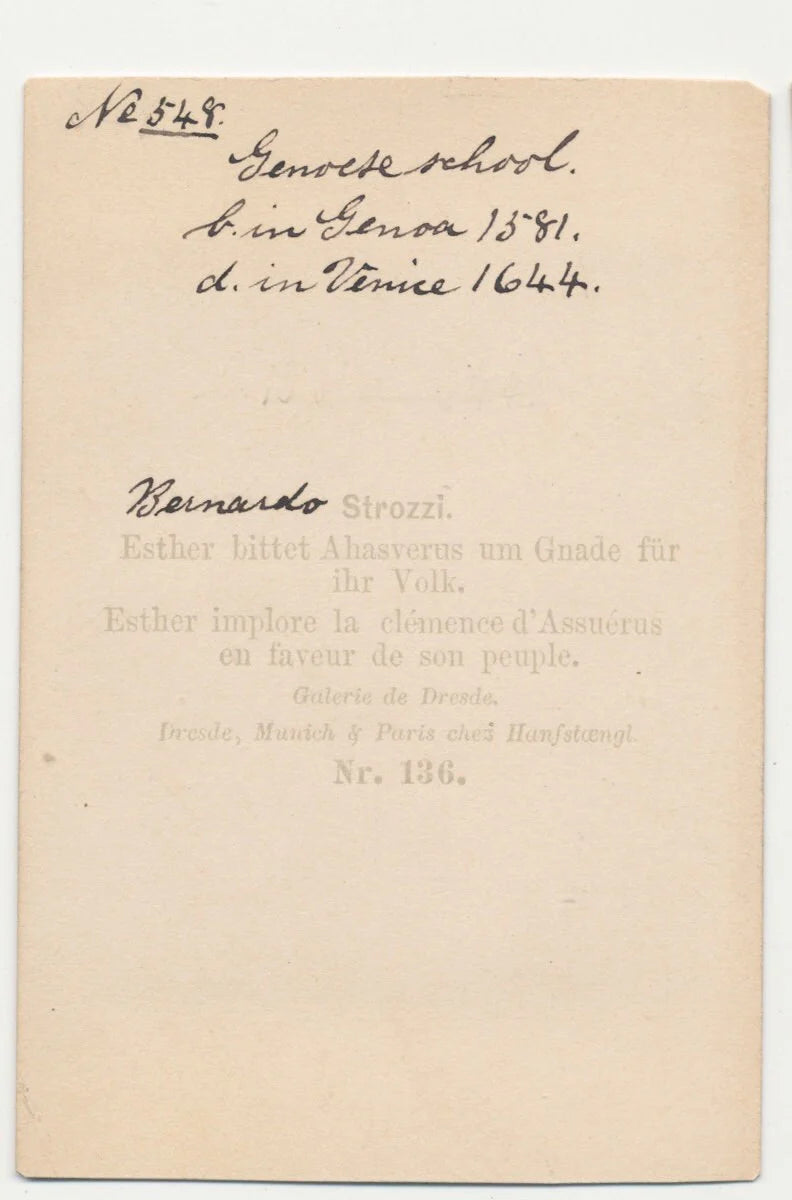 No 548.
Genoese school.
b. in Genoa 1581.
d. in Venice 1644.
Bernardo Strozzi.
Esther bittet Ahasverus um Gnade für
ihr Volk.
Esther implore la clémence d'Assuérus
en faveur de son peuple.
Galerie de Dresde.
Dresde, Munich & Paris chez Hanfstængl.
Nr. 136.